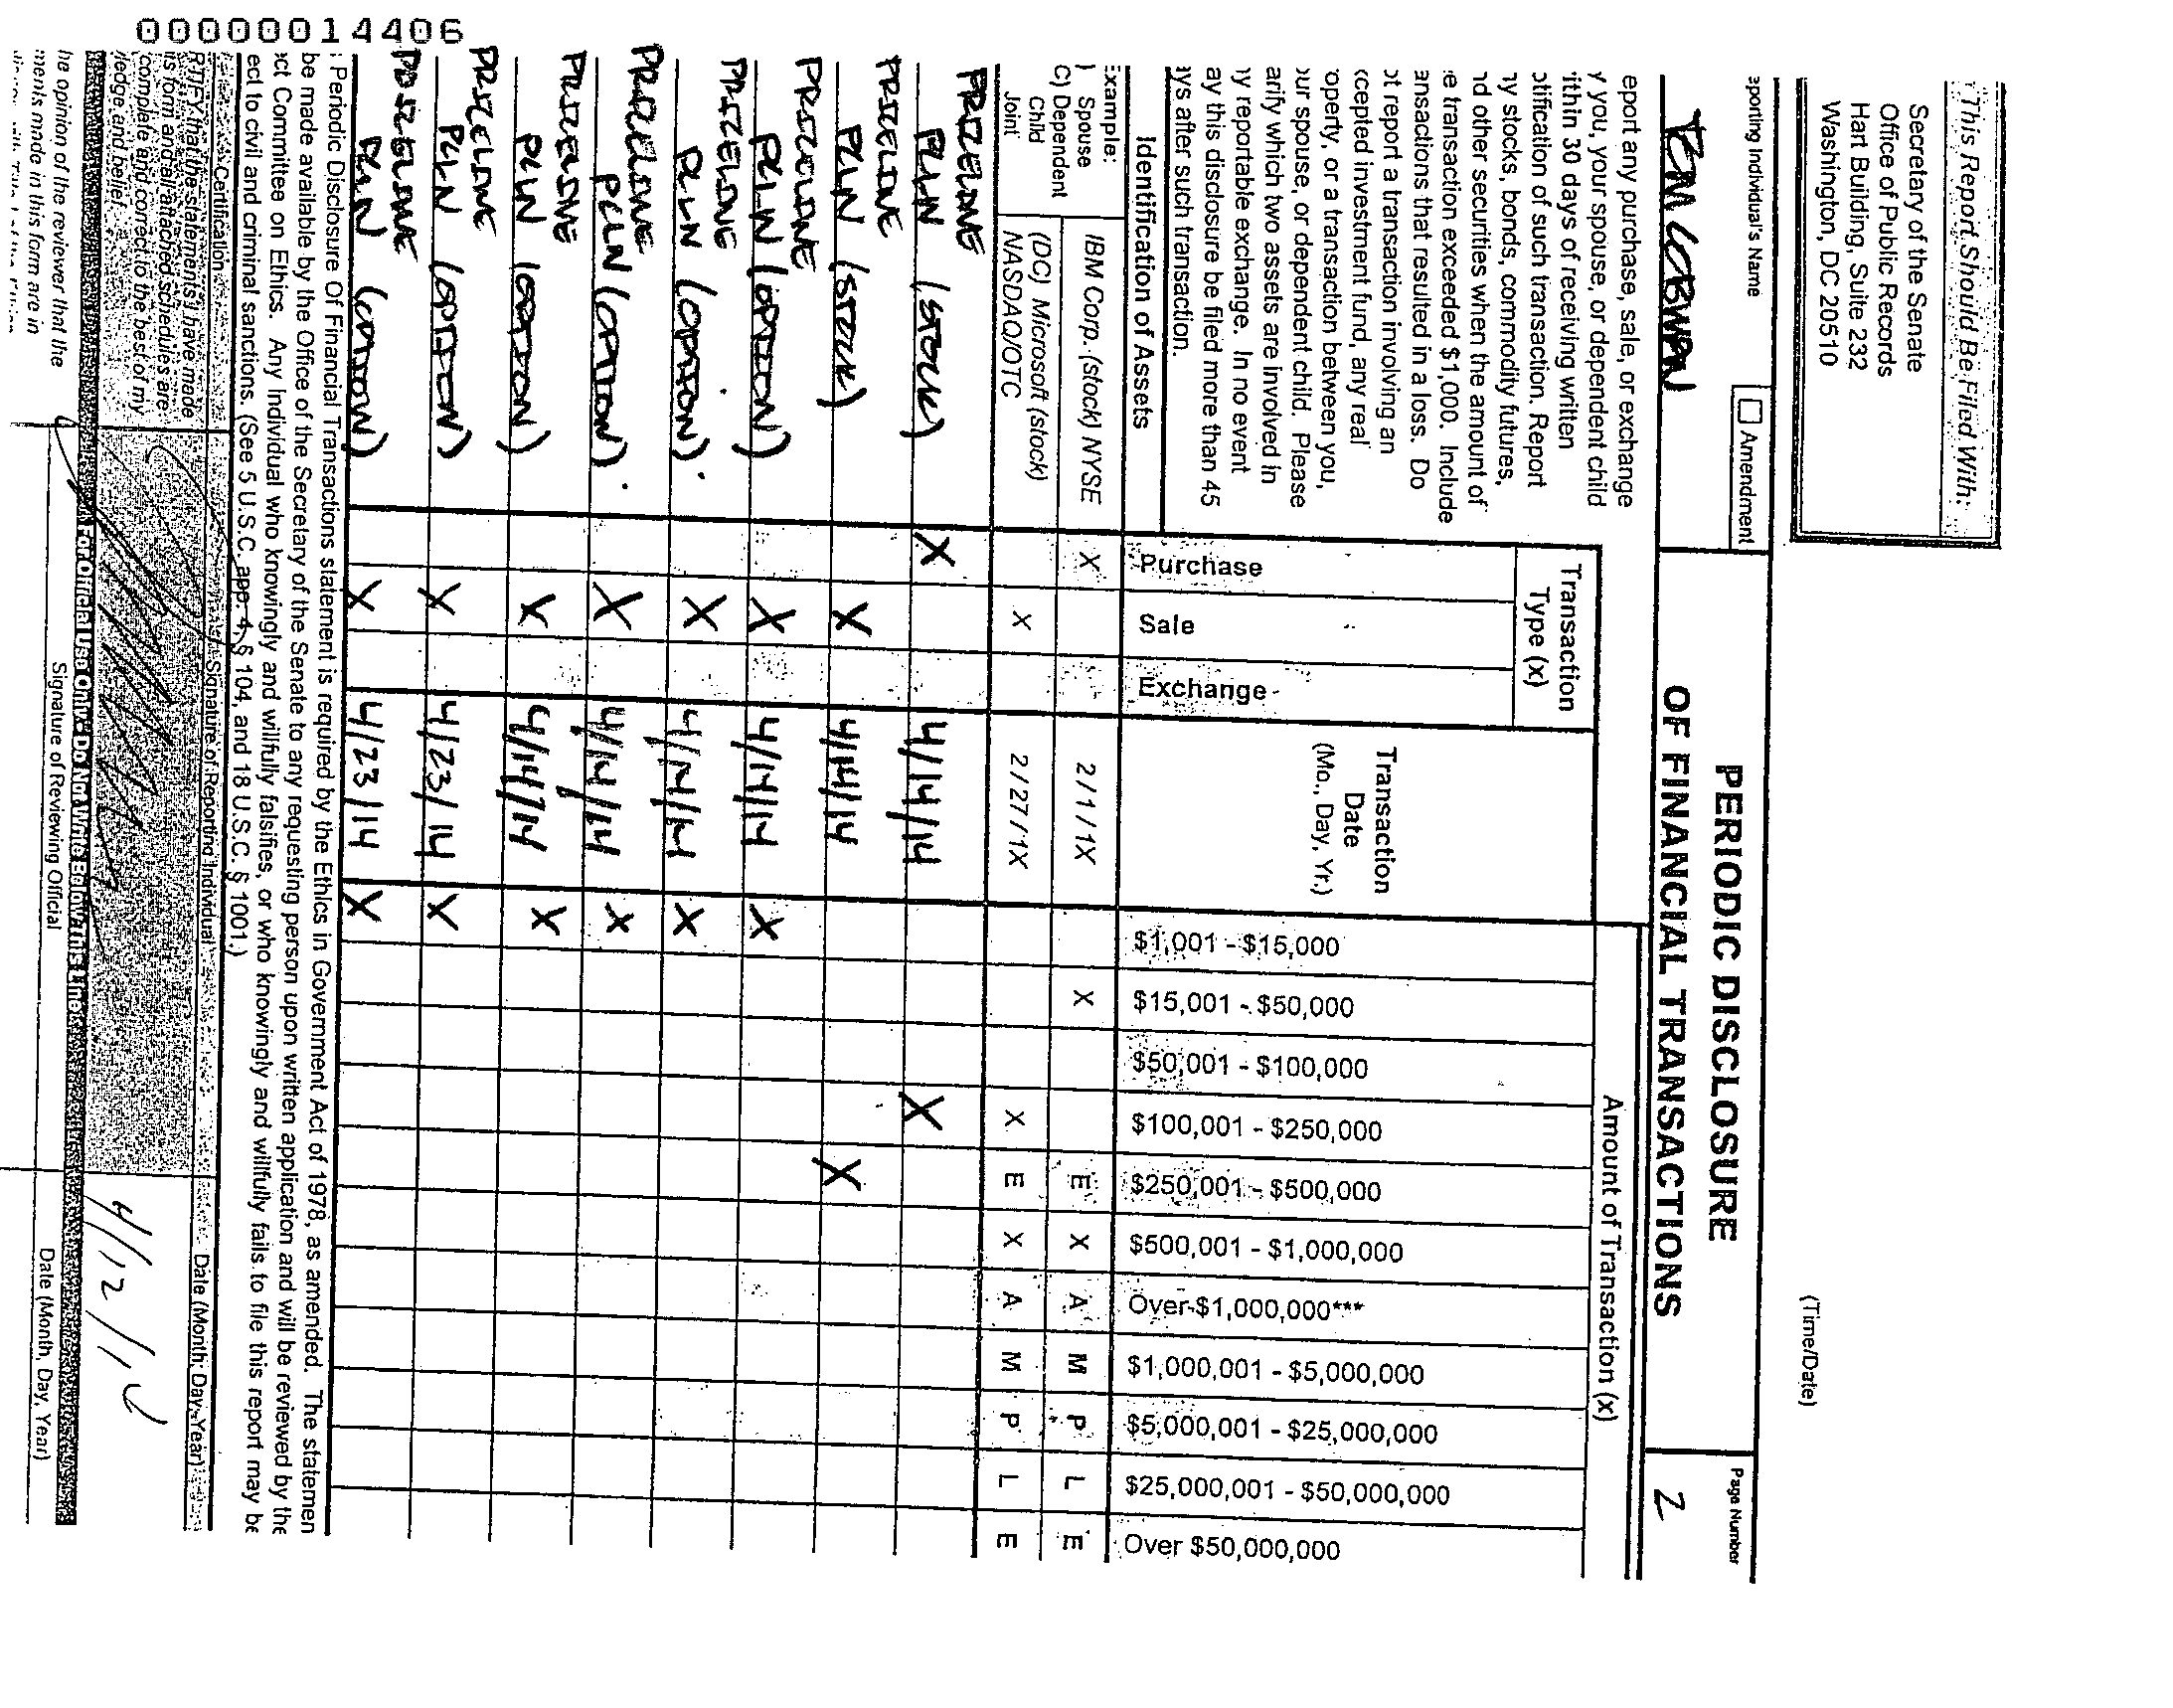 This Report Should Be Filed With:
Secretary of the Senate
Office of Public Records
Hart Building, Suite 232
Washington, DC 20510
(Time/Date)
eporting Individual's Name
Amendment
PERIODIC DISCLOSURE
OF FINANCIAL TRANSACTIONS
Page Number
2
eport any purchase, sale, or exchange
y you, your spouse, or dependent child
ithin 30 days of receiving written
otification of such transaction. Report
ny stocks, bonds, commodity futures,
nd other securities when the amount of
e transaction exceeded $1,000. Include
ansactions that resulted in a loss. Do
ot report a transaction involving an
xcepted investment fund, any real
operty, or a transaction between you,
our spouse, or dependent child. Please
arify which two assets are involved in
ny reportable exchange. In no event
ay this disclosure be filed more than 45
ays after such transaction.
Identification of Assets
Transaction
Type (x)
Purchase
Sale
Exchange
Transaction
Date
(Mo., Day, Yr.)
Amount of Transaction (x)
$1,001 - $15,000
$15,001 - $50,000
$50,001 - $100,000
$100,001 - $250,000
$250,001 - $500,000
$500,001 - $1,000,000
Over $1,000,000***
$1,000,001 - $5,000,000
$5,000,001 - $25,000,000
$25,000,001 - $50,000,000
Over $50,000,000
Example:
) Spouse
C) Dependent
Child
Joint
IBM Corp. (stock) NYSE X 2/1/1X X E X A M P L E
(DC) Microsoft (stock)
NASDAQ/OTC X 2/27/1X X E X A M P L E
PRICELINE
PCLN (STOCK) X 4/14/14 X
PRICELINE
PCLN (STOCK) X 4/14/14 X
PRICELINE
PCLN (OPTION) X 4/14/14 X
PRICELINE
PCLN (OPTION) X 4/14/14 X
PRICELINE
PCLN (OPTION) X 4/14/14 X
PRICELINE
PCLN (OPTION) X 4/14/14 X
PRICELINE
PCLN (OPTION) X 4/23/14 X
PRICELINE
PCLN (OPTION) X 4/23/14 X
Periodic Disclosure Of Financial Transactions statement is required by the Ethics in Government Act of 1978, as amended. The statemen
be made available by the Office of the Secretary of the Senate to any requesting person upon written application and will be reviewed by the
ct Committee on Ethics. Any Individual who knowingly and willfully falsifies, or who knowingly and willfully fails to file this report may be
ect to civil and criminal sanctions. (See 5 U.S.C. app. 4, § 104, and 18 U.S.C. § 1001.)
Certification
Signature of Reporting Individual
Date (Month, Day, Year)
RTIFY that the statements I have made
is form and all attached schedules are
complete and correct to the best of my
ledge and belief.
For Official Use Only - Do Not Write Below this Line
he opinion of the reviewer that the
ments made in this form are in
Signature of Reviewing Official
Date (Month, Day, Year)
00000014406